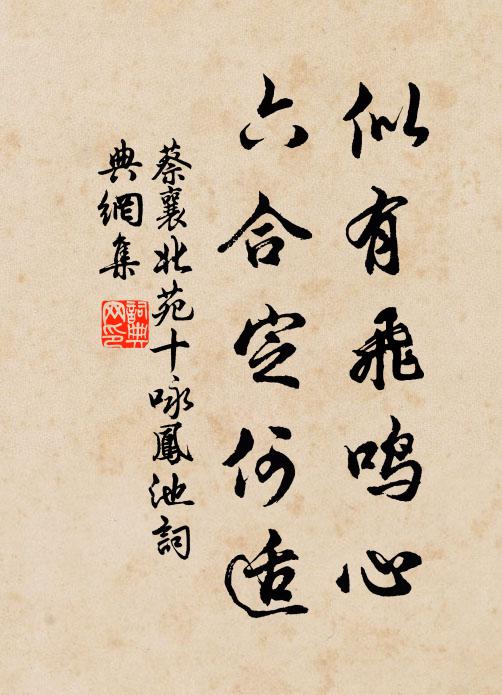 似有飛鳴心
六合定何适
蔡襄北苑十咏鳳池詞
典網集
詞典网印